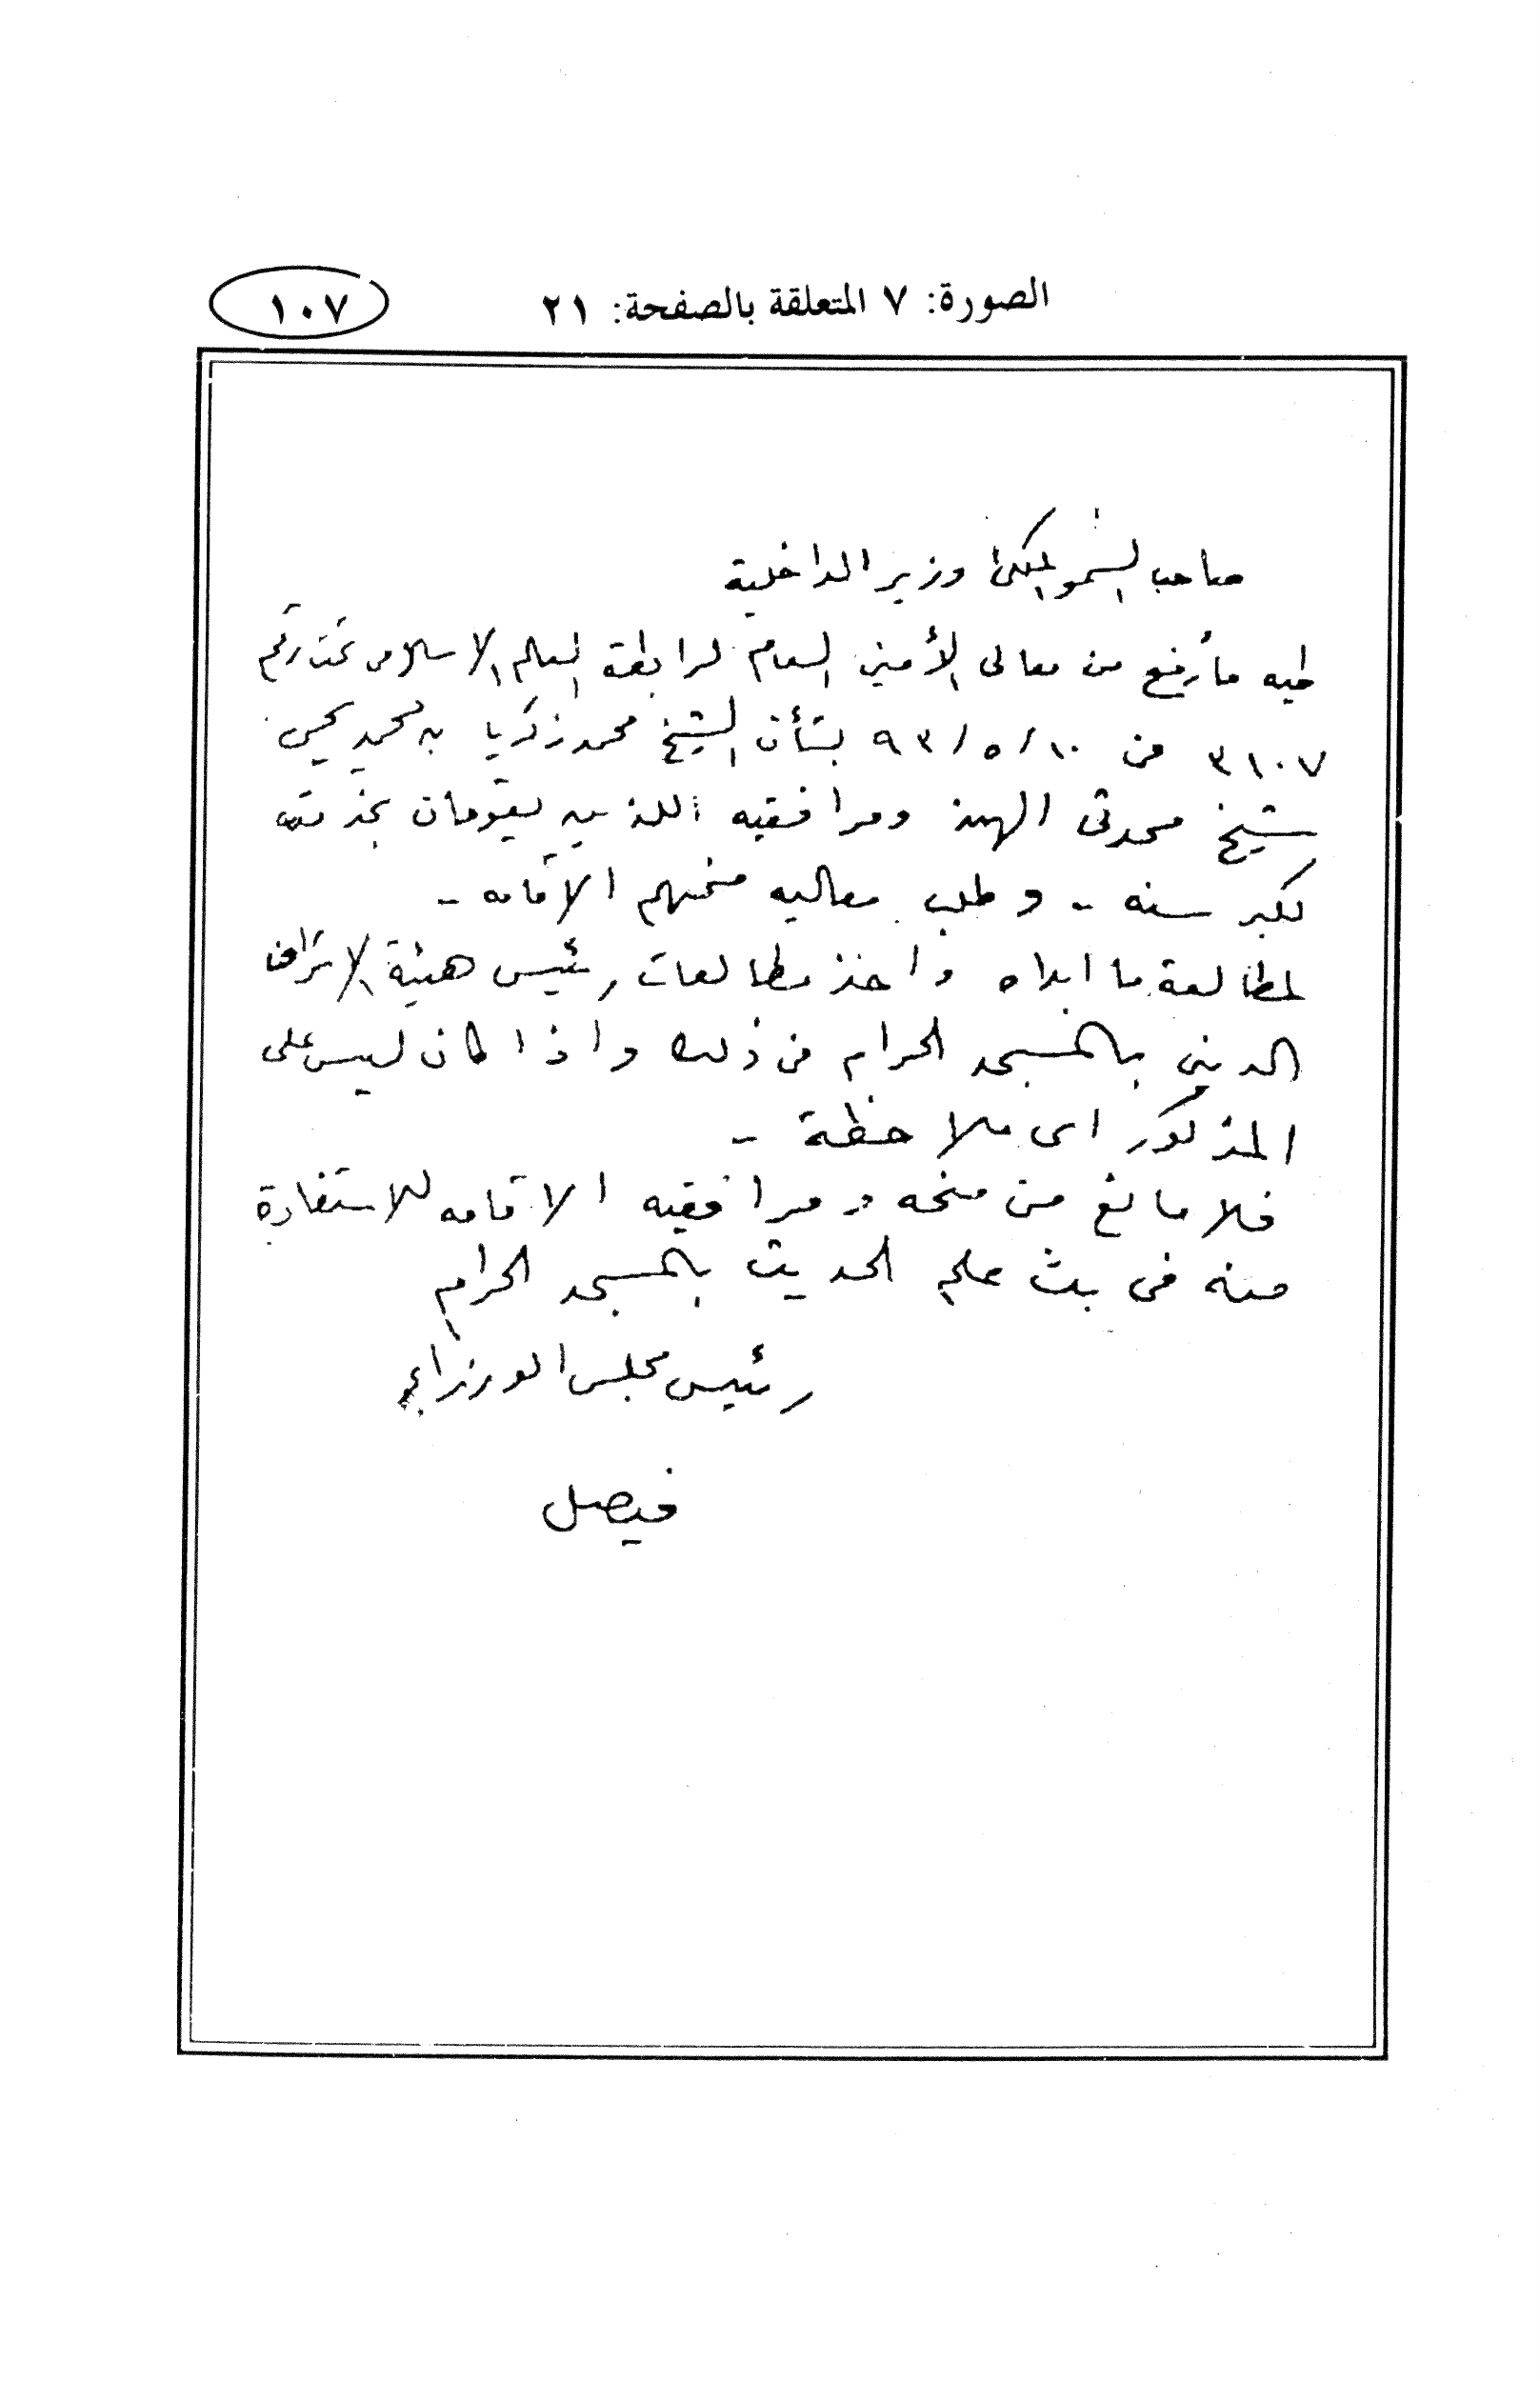 الصورة: ٧ المتعلقة بالصفحة: ٢١
١٠٧
صاحب السمو الملكي وزير الداخلية
طيه ما رفع من معالى الأمين العام لرابطة العالم الاسلامى تحت رقم
٣١٠٧ فى ١٠ / ٥ / ٩٣ بشأن الشيخ محمد زكريا بن محمد يحيى
شيخ محدثى الهند ومرافقيه اللذين يقومان بخدمته
لكبر سنه - وطلب معاليه منحهم الاقامه -
لمطالعة ما ابداه واخذ مطالعات رئيس هيئة الاشراف
الدينى بالمسجد الحرام فى ذلك واذا كان ليس على
المذكور اى ملاحظة -
فلا مانع من منحه ومرافقيه الاقامه للاستفادة
منه فى بث علم الحديث بالمسجد الحرام
رئيس مجلس الوزراء
فيصل